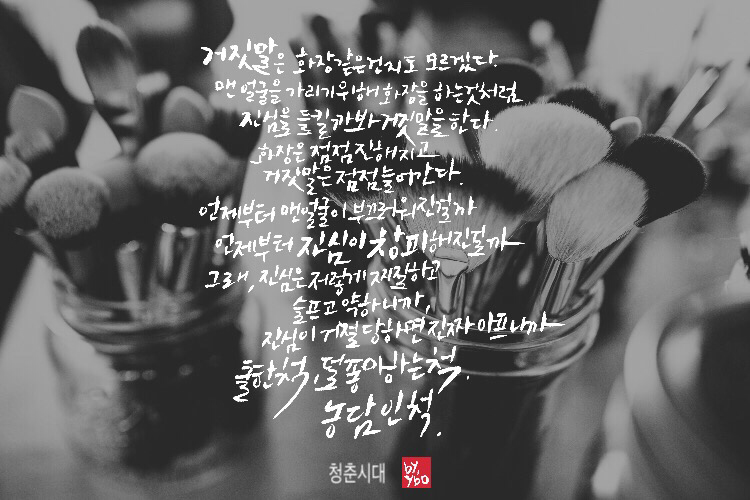 거짓말은 화장같은건지도 모르겠다.
맨얼굴을 가리기위해 화장을 하는것처럼
진심을 들킬까봐 거짓말을 한다.
화장은 점점 진해지고
거짓말은 점점 늘어간다.
언제부터 맨얼굴이 부끄러워진걸까
언제부터 진심이 창피해진걸까
그래, 진심은 저렇게 찌질하고
슬프고 약하니까,
진심이 거절당하면 진짜 아프니까
쿨한척, 덜 좋아하는척.
농담인척.
청춘시대
by.
ybo